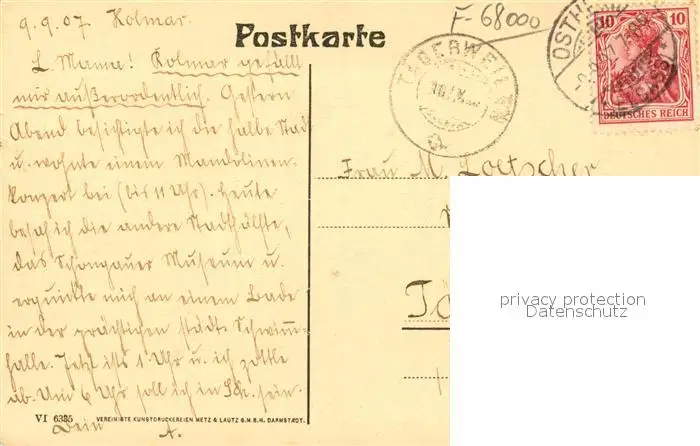 9.9.07 Kolmar.
F-68000
Postkarte
L. Mama! Kolmar gefällt
mir außerordentlich. Gestern
Abend besichtigte ich die halbe Stadt
u. wohnte einem Mandolinen-
konzert bei (bis 11 Uhr). Heute
besah ich die andere Stadthälfte,
das Schongauer Museum u.
erquickte mich an einem Bade
in der prächtigen städt. Schwimm-
halle. Jetzt ists 1 Uhr u. ich zottle
ab. Um 6 Uhr soll ich in Sch. sein.
Dein A.
TÄGERWEILEN
10 10
DEUTSCHES REICH
Frau M. Loetscher
privacy protection
Datenschutz
VI 6335 VEREINIGTE KUNSTDRUCKEREIEN METZ & LAUTZ G.M.B.H. DARMSTADT.